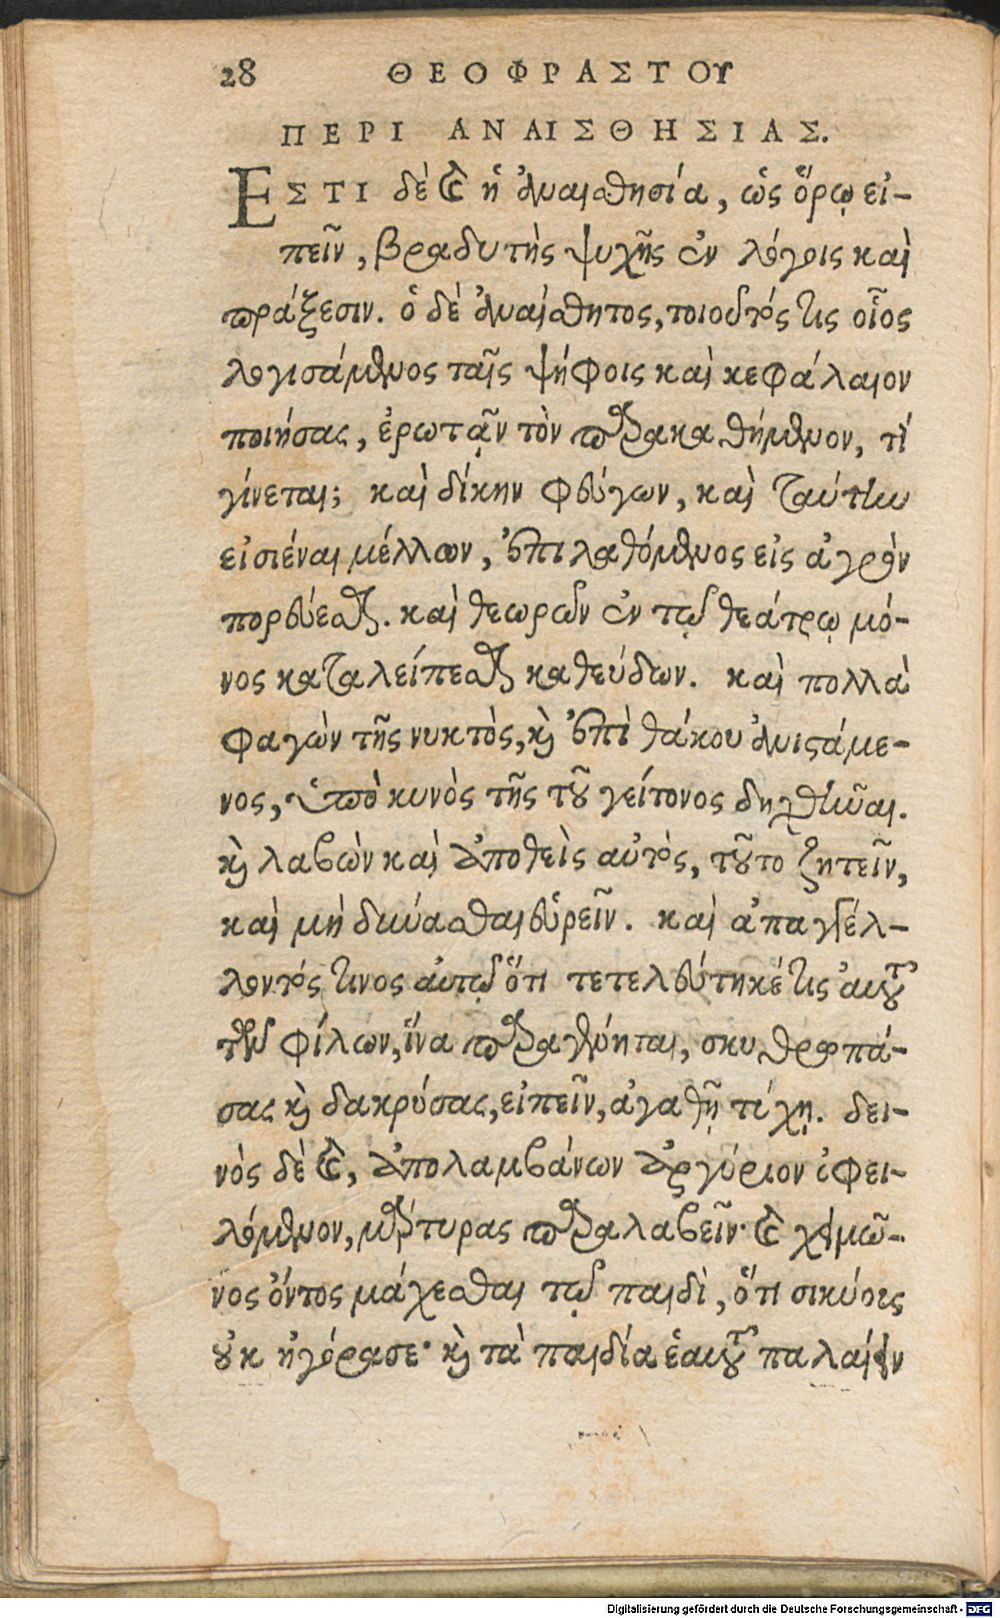 28 ΘΕΟΦΡΑΣΤΟΥ
ΠΕΡΙ ΑΝΑΙΣΘΗΣΙΑΣ.
ΕΣΤΙ δὲ καὶ ἡ ἀναισθησία, ὡς ὅρῳ εἰ-
πεῖν, βραδυτὴς ψυχῆς ἐν λόγοις καὶ
πράξεσιν. ὁ δὲ ἀναίσθητος, τοιοῦτός τις οἷος
λογισάμενος ταῖς ψήφοις καὶ κεφάλαιον
ποιήσας, ἐρωτᾷν τὸν παρακαθήμενον, τί
γίνεται; καὶ δίκην φεύγων, καὶ ταύτην
εἰσιέναι μέλλων, ἐπιλαθόμενος εἰς ἀγρὸν
πορεύεσθαι. καὶ θεωρῶν ἐν τῷ θεάτρῳ μό-
νος καταλείπεσθαι καθεύδων. καὶ πολλὰ
φαγὼν τῆς νυκτὸς, καὶ ἐπὶ θάκου ἀνιστάμε-
νος, ὑπὸ κυνὸς τῆς τοῦ γείτονος δηχθῆναι.
καὶ λαβὼν καὶ ἀποθεὶς αὐτὸς, τοῦτο ζητεῖν,
καὶ μὴ δύνασθαι εὑρεῖν. καὶ ἀπαγγέλ-
λοντός τινος αὐτῷ ὅτι τετελεύτηκέ τις αὐτοῦ
τῶν φίλων, ἵνα παραγένηται, σκυθρωπά-
σας καὶ δακρύσας, εἰπεῖν, ἀγαθῇ τύχῃ. δει-
νὸς δὲ καὶ, ἀπολαμβάνων ἀργύριον ὀφει-
λόμενον, μάρτυρας παραλαβεῖν· καὶ χειμῶ-
νος ὄντος μάχεσθαι τῷ παιδὶ, ὅτι σικύους
οὐκ ἠγόρασε· καὶ τὰ παιδία ἑαυτοῦ παλαίειν
Digitalisierung gefördert durch die Deutsche Forschungsgemeinschaft - DFG